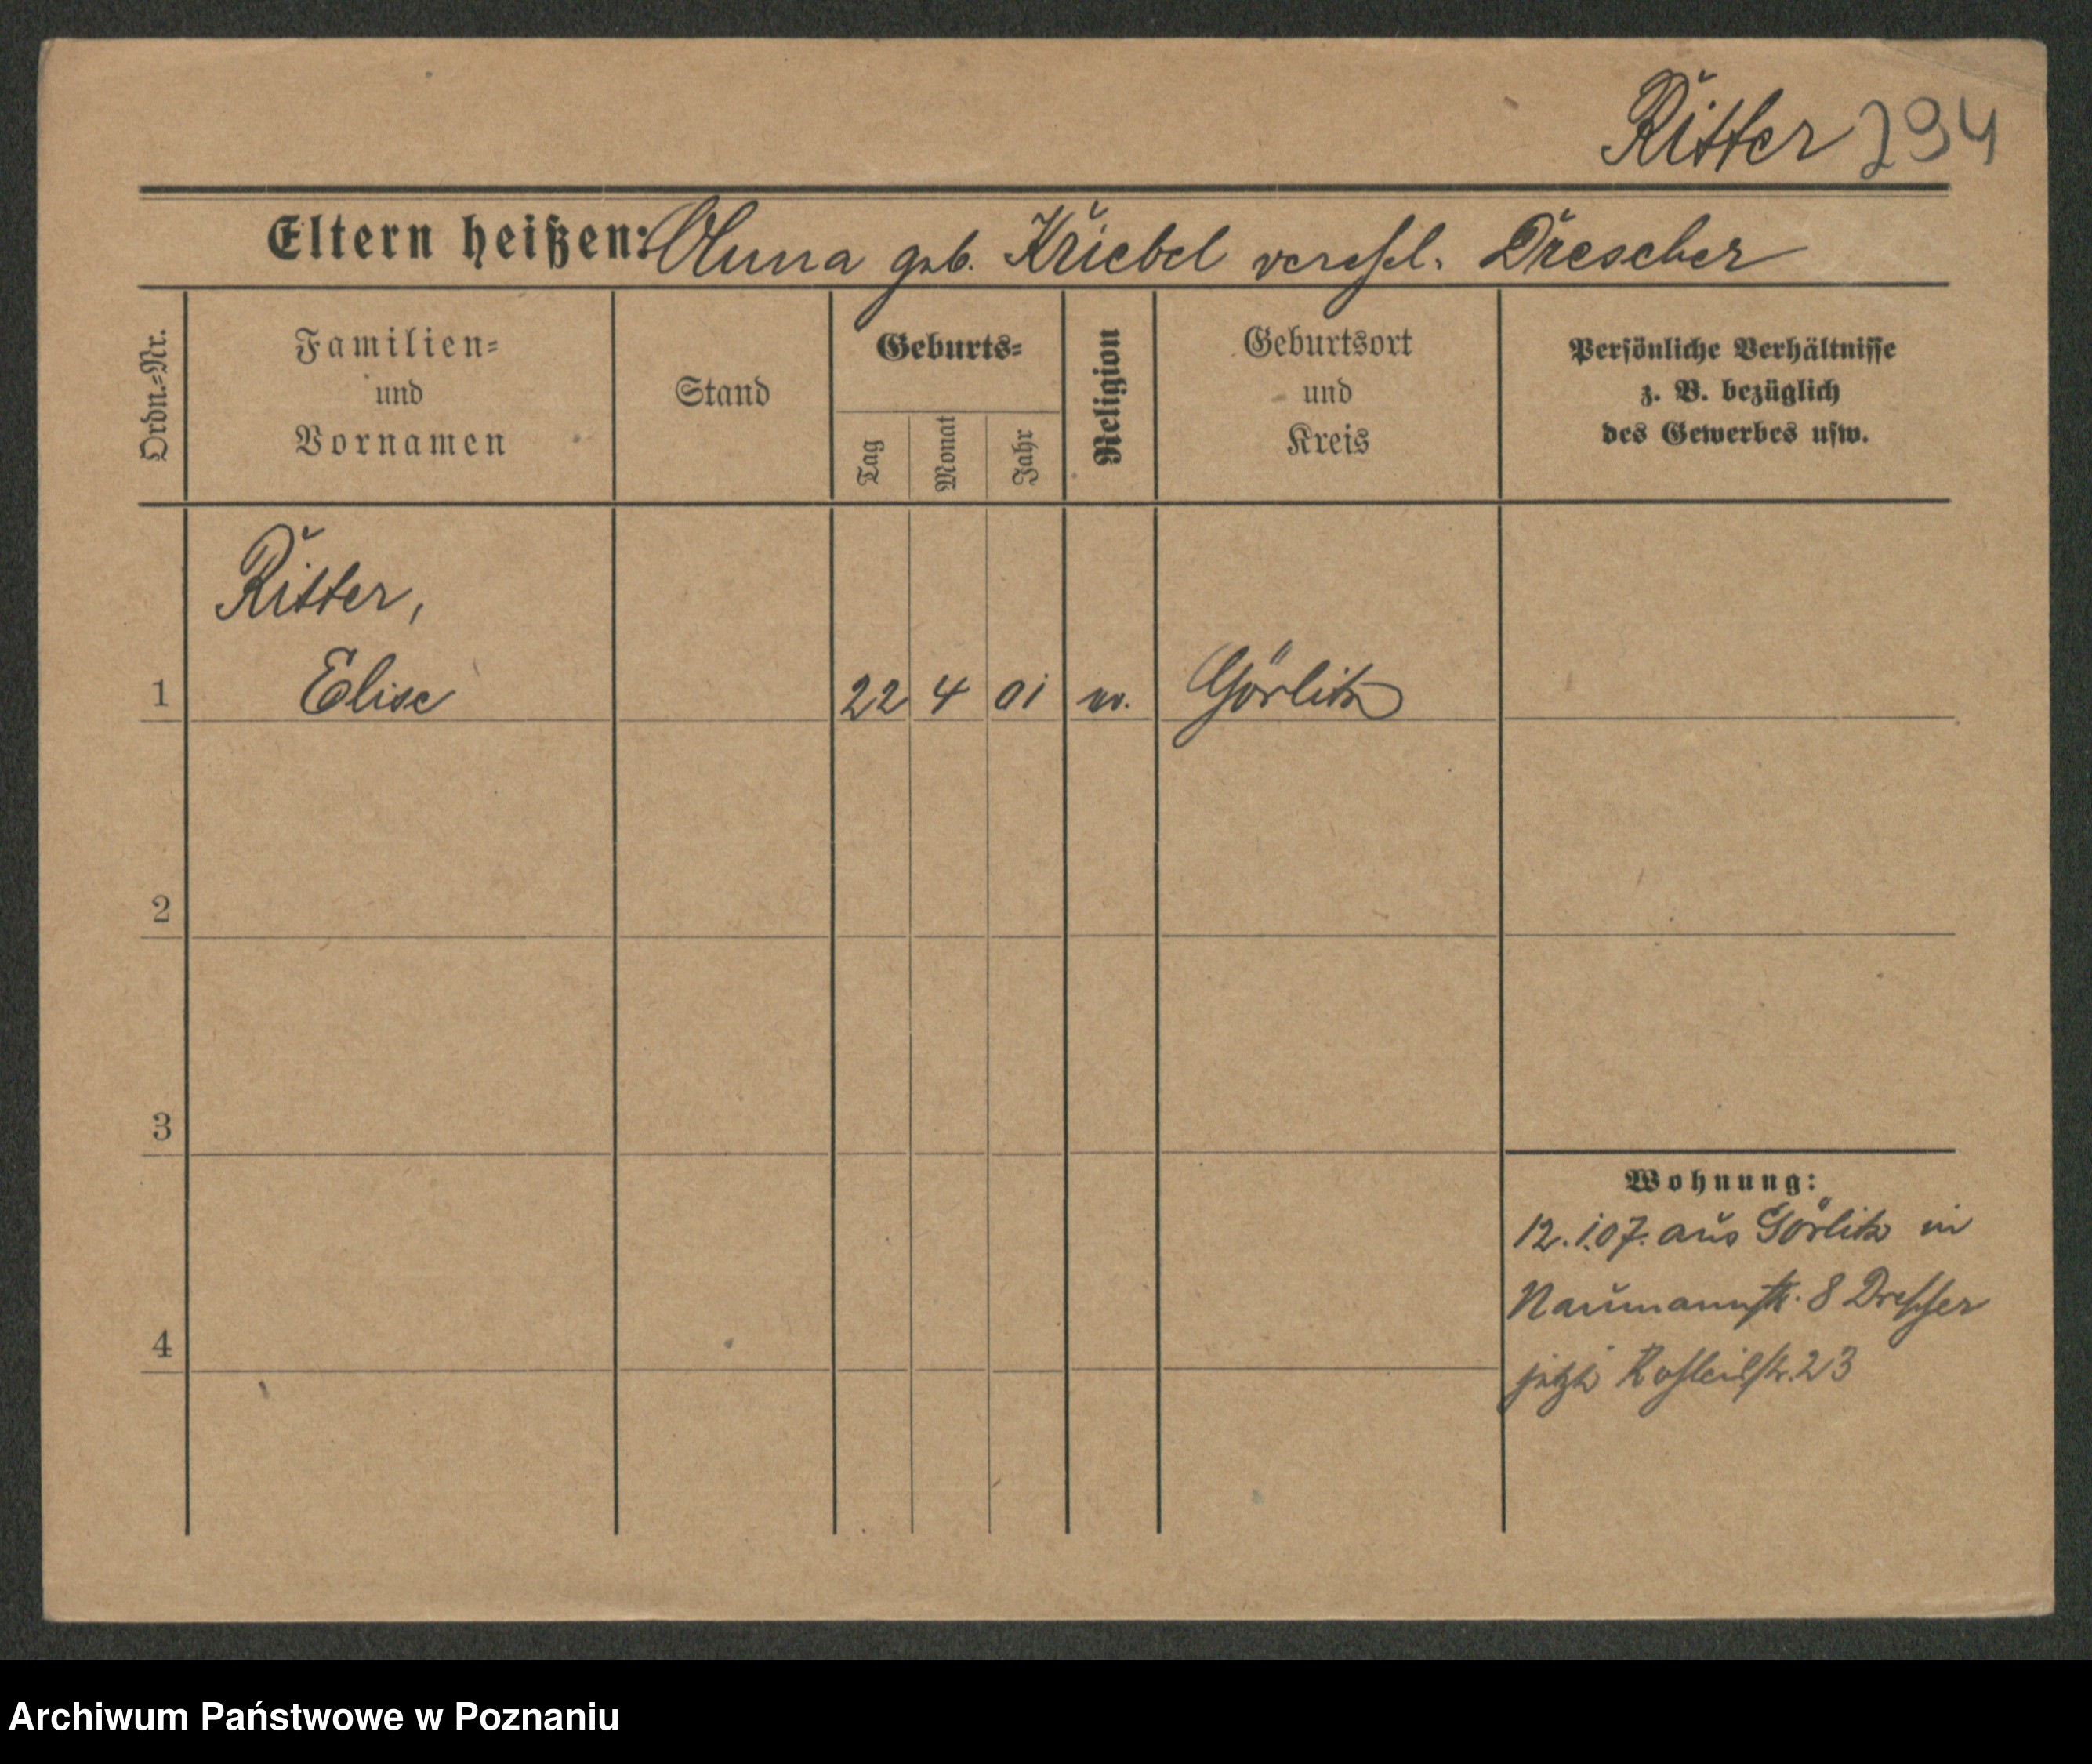 Ritter 294
Eltern heißen: Anna geb. Kriebel verehel. Drescher
Ordn.=Nr.
Familien=
und
Vornamen
Stand
Geburts=
Tag
Monat
Jahr
Religion
Geburtsort
und
Kreis
Persönliche Verhältnisse
z. B. bezüglich
des Gewerbes usw.
Ritter,
1 Elise 22 4 01 ev. Görlitz
2
3
4
Wohnung:
12.1.07. aus Görlitz in
Naumannstr. 8 Drescher
jetzt 23